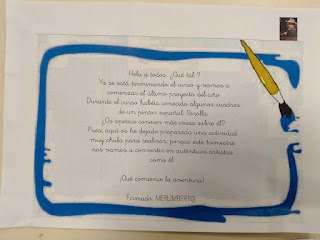 Hola a todos. ¿Qué tal ?
Ya se está terminando el curso y vamos a
comenzar el último proyecto del año.
Durante el curso habéis conocido algunos cuadros
de un pintor español: Sorolla.
¿Os apetece conocer más cosas sobre él?
Pues aquí os he dejado preparada una actividad
muy chula para realizar, porque este trimestre
nos vamos a convertir en auténticos artistas
como él.
¡Qué comience la aventura!
Firmado: MERLIMBERTO